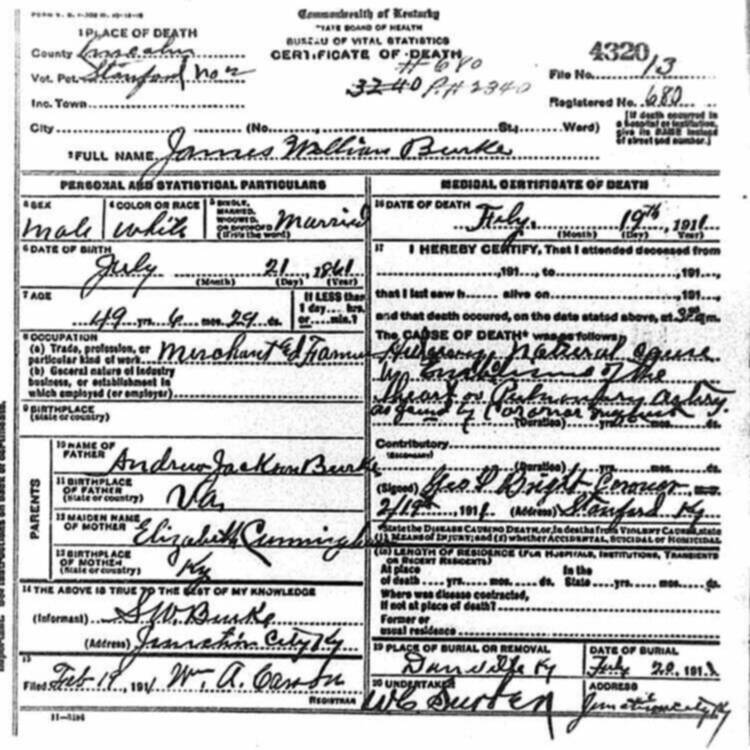 FORM V. S. 1-
Commonwealth of Kentucky
STATE BOARD OF HEALTH
BUREAU OF VITAL STATISTICS
CERTIFICATE OF DEATH
1 PLACE OF DEATH
County Lincoln
Vot. Pct. Stanford No 2
Inc. Town
City (No. St.; Ward)
# 680
3240 P.H 2340
4320
File No. 13
Registered No. 680
[If death occurred in a hospital or institution, give its NAME instead of street and number.]
2 FULL NAME James William Burke
PERSONAL AND STATISTICAL PARTICULARS
3 SEX
male
4 COLOR OR RACE
white
5 SINGLE, MARRIED, WIDOWED, OR DIVORCED (Write the word) Married
6 DATE OF BIRTH
July 21, 1861
(Month) (Day) (Year)
7 AGE
49 yrs. 6 mos. 29 ds.
If LESS than 1 day... hrs. or... min.?
8 OCCUPATION
(a) Trade, profession, or particular kind of work Merchant
(b) General nature of industry business, or establishment in which employed (or employer)
9 BIRTHPLACE
(State or country)
PARENTS
10 NAME OF FATHER Andrew Jackson Burke
11 BIRTHPLACE OF FATHER (State or country) Va.
12 MAIDEN NAME OF MOTHER Elizabeth Cunningham
13 BIRTHPLACE OF MOTHER (State or country) Ky
14 THE ABOVE IS TRUE TO THE BEST OF MY KNOWLEDGE
(Informant) S.W. Burke
(Address) Junction City Ky
15
Filed Feb 19, 1911 Wm. A. Carson
REGISTRAR
11-3184
MEDICAL CERTIFICATE OF DEATH
16 DATE OF DEATH
19th, 1911
(Month) (Day) (Year)
17 I HEREBY CERTIFY, That I attended deceased from
191 , to 191 ,
that I last saw h alive on 191 ,
and that death occured, on the date stated above, at m.
The CAUSE OF DEATH* was as follows:
Natural Cause
by Embolism of the
Heart or Pulmonary artery
as found by Coroner
(Duration) yrs. mos. ds.
Contributory
(SECONDARY)
(Duration) yrs. mos. ds.
(Signed) Geo P Bright Coroner
2/19th 1911 (Address) Stanford Ky
*State the DISEASE CAUSING DEATH, or, in deaths from VIOLENT CAUSES, state (1) MEANS OF INJURY; and (2) whether ACCIDENTAL, SUICIDAL or HOMICIDAL
18 LENGTH OF RESIDENCE (FOR HOSPITALS, INSTITUTIONS, TRANSIENTS OR RECENT RESIDENTS)
At place of death yrs. mos. ds. In the State yrs. mos. ds.
Where was disease contracted, If not at place of death?
Former or usual residence
19 PLACE OF BURIAL OR REMOVAL
Danville Ky
DATE OF BURIAL
20, 1911
20 UNDERTAKER
W C
ADDRESS
Junction City Ky